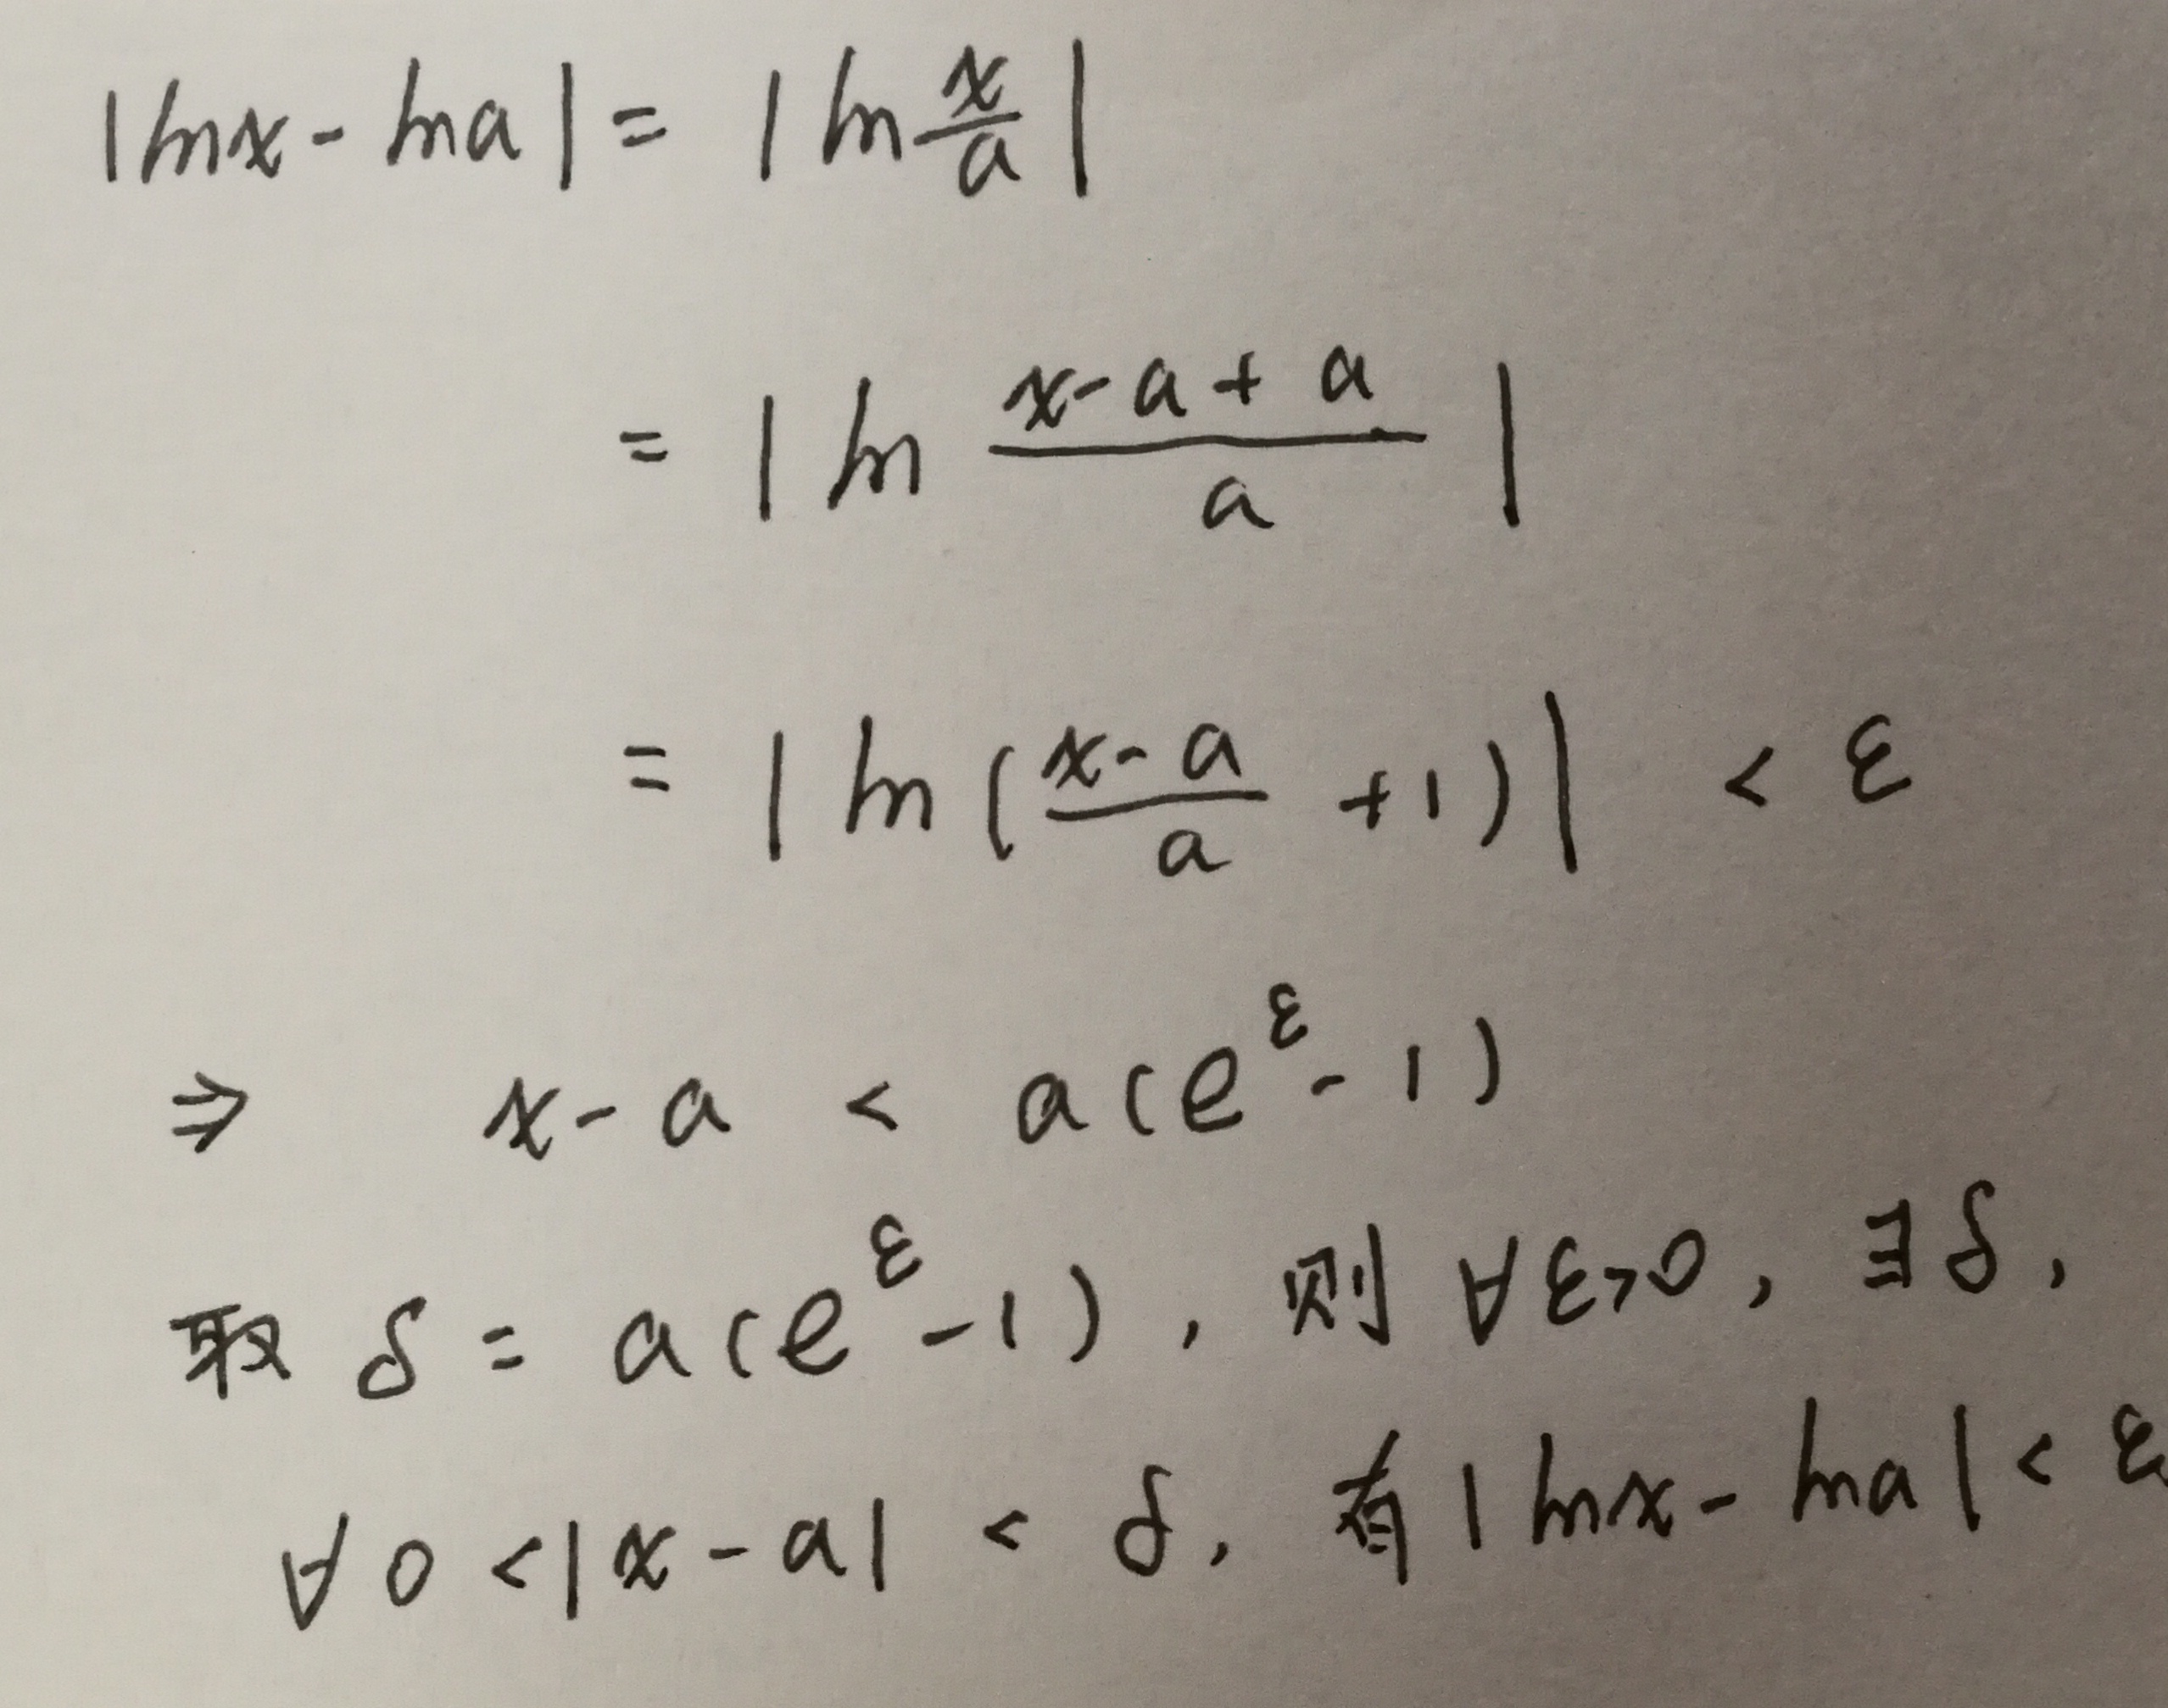 |lnx - lna| = |ln x/a|
= |ln (x-a+a)/a|
= |ln((x-a)/a +1)| < ε
⇒ x-a < a(e^ε-1)
取 δ = a(e^ε-1), 则 ∀ε>0, ∃δ,
∀ 0<|x-a| < δ, 有 |lnx - lna| < ε